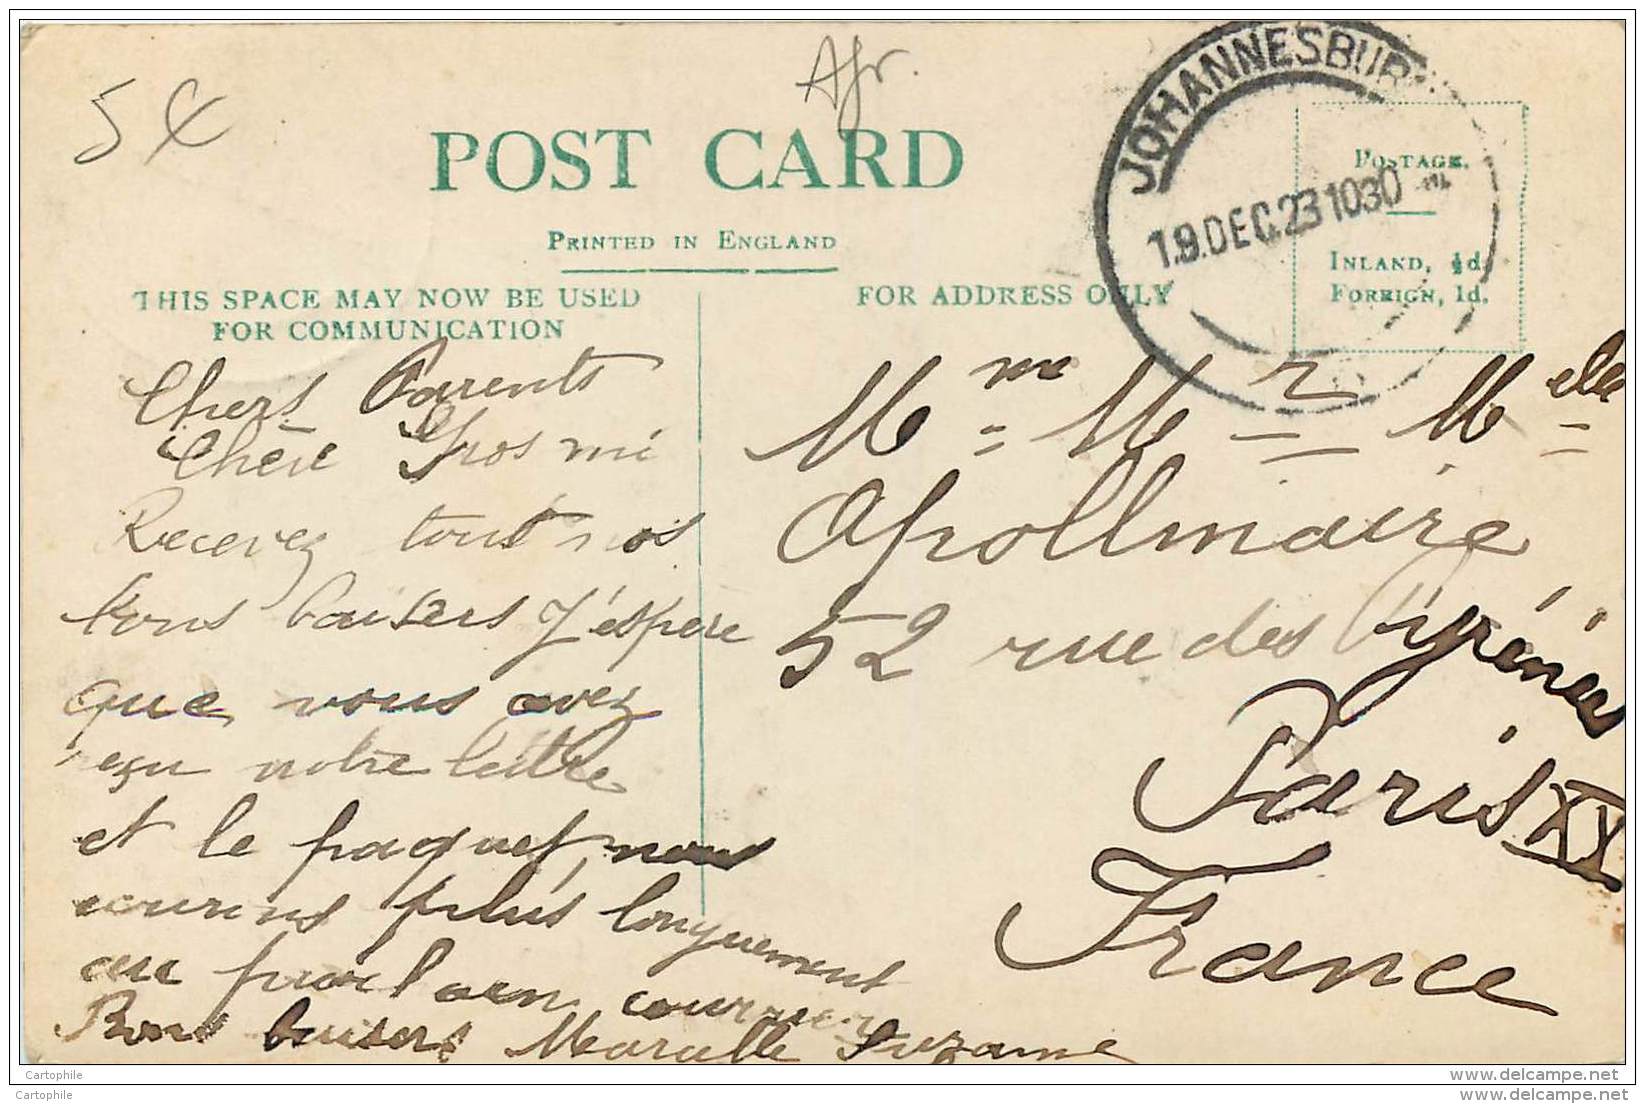 5 X
Afr.
JOHANNESBURG
19.DEC.23 1030
POST CARD
PRINTED IN ENGLAND
THIS SPACE MAY NOW BE USED
FOR COMMUNICATION
FOR ADDRESS ONLY
POSTAGE.
INLAND, ½d.
FOREIGN, 1d.
Chers Parents
Chère Gros mi
Recevez tout nos
bons baisers J'éspère
que vous avez
reçu notre lettre
et le paquet, nous
écurons plus longuement
au prochaen courrier
Bons baisers Marcelle Suzanne
Mme Mr Melle
Apollinaire
52 rue des Pyrénées
Paris XX
France
Cartophile
Cartophile
delcampe.net
delcampe.net